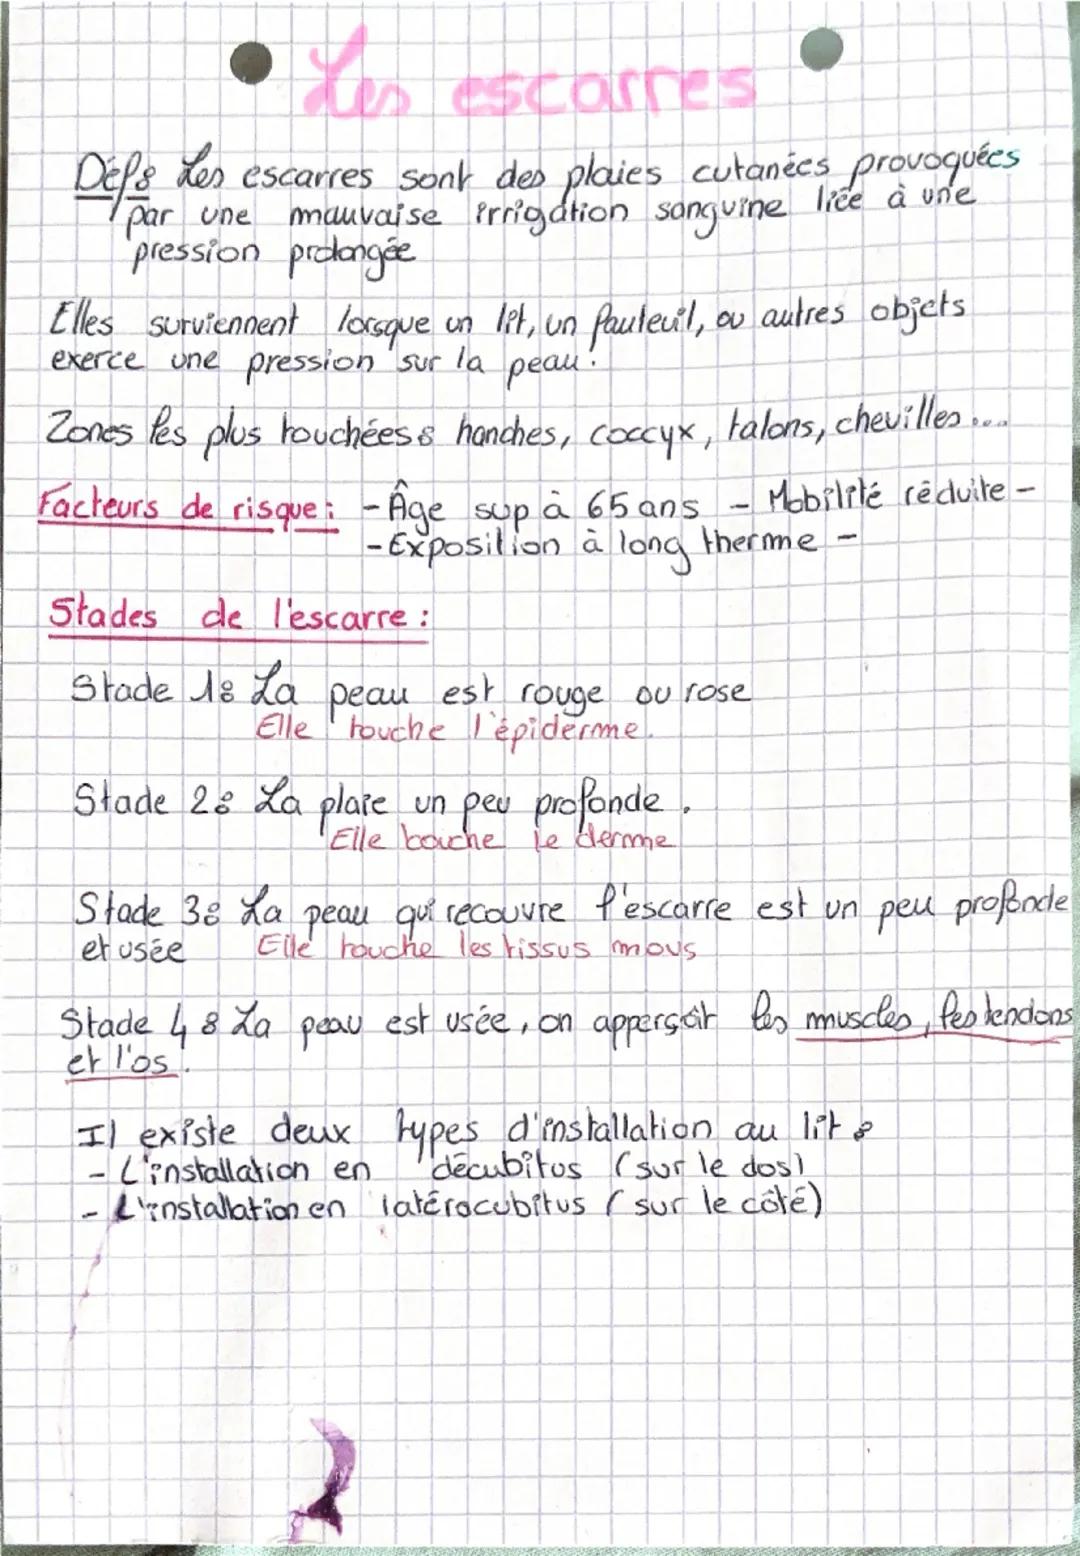 Les escarres
Déf: Les escarres sont des plaies cutanées provoquées
par une mauvaise irrigation sanguine liée à une
pression prolongée
Elles surviennent lorsque un lit, un fauteuil, ou autres objets
exerce une pression sur la peau.
Zones les plus touchées: hanches, coccyx, talons, chevilles....
Facteurs de risque: - Âge sup à 65 ans - Mobilité réduite -
- Exposition à long therme -
Stades de l'escarre :
Stade 1: La peau est rouge ou rose
Elle touche l'épiderme.
Stade 2: La plaie un peu profonde.
Elle touche le derme
Stade 3: La peau qui recouvre l'escarre est un peu profonde
et usée Elle touche les tissus mous
Stade 4: La peau est usée, on apperçoit les muscles, les tendons
et l'os.
Il existe deux types d'installation au lit:
- L'installation en décubitus (sur le dos)
- L'installation en latérocubitus (sur le côté)